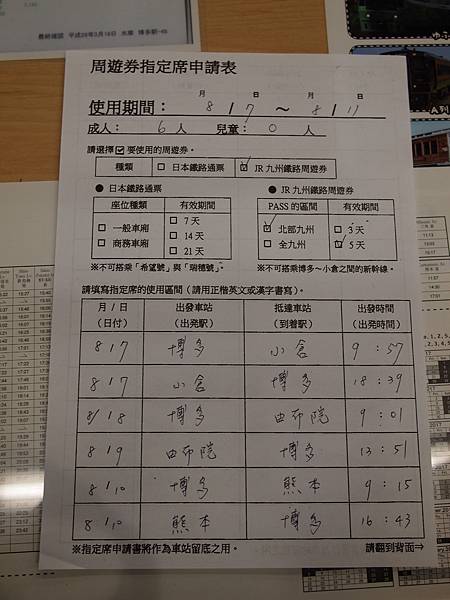 最終確認 平成29年3月16日 水曜 博多駅-45
周遊券指定席申請表
月 日 月 日
使用期間： 8 / 7 ～ 8 / 11
成人： 6 人 兒童： 0 人
請選擇☑要使用的周遊券。
種類 □ 日本鐵路通票 ☑ JR 九州鐵路周遊券
● 日本鐵路通票 ● JR 九州鐵路周遊券
座位種類 有效期間 PASS 的區間 有效期間
□ 一般車廂 □ 7 天 ☑ 北部九州 □ 3 天
□ 商務車廂 □ 14 天 □ 全九州 ☑ 5 天
□ 21 天
※不可搭乘「希望號」與「瑞穗號」。 ※不可搭乘博多～小倉之間的新幹線。
請填寫指定席的使用區間（請用正楷英文或漢字書寫）。
月 / 日 出發車站 抵達車站 出發時間
（日付） （出発駅） （到着駅） （出発時間）
8 / 7 博多 小倉 9 : 57
8 / 7 小倉 博多 18 : 39
8/ 18 博多 由布院 9 : 01
8 / 9 由布院 博多 13 : 51
8 / 10 博多 熊本 9 : 15
8 / 10 熊本 博多 16 : 43
※指定席申請書將作為車站留底之用。 請翻到背面⇒